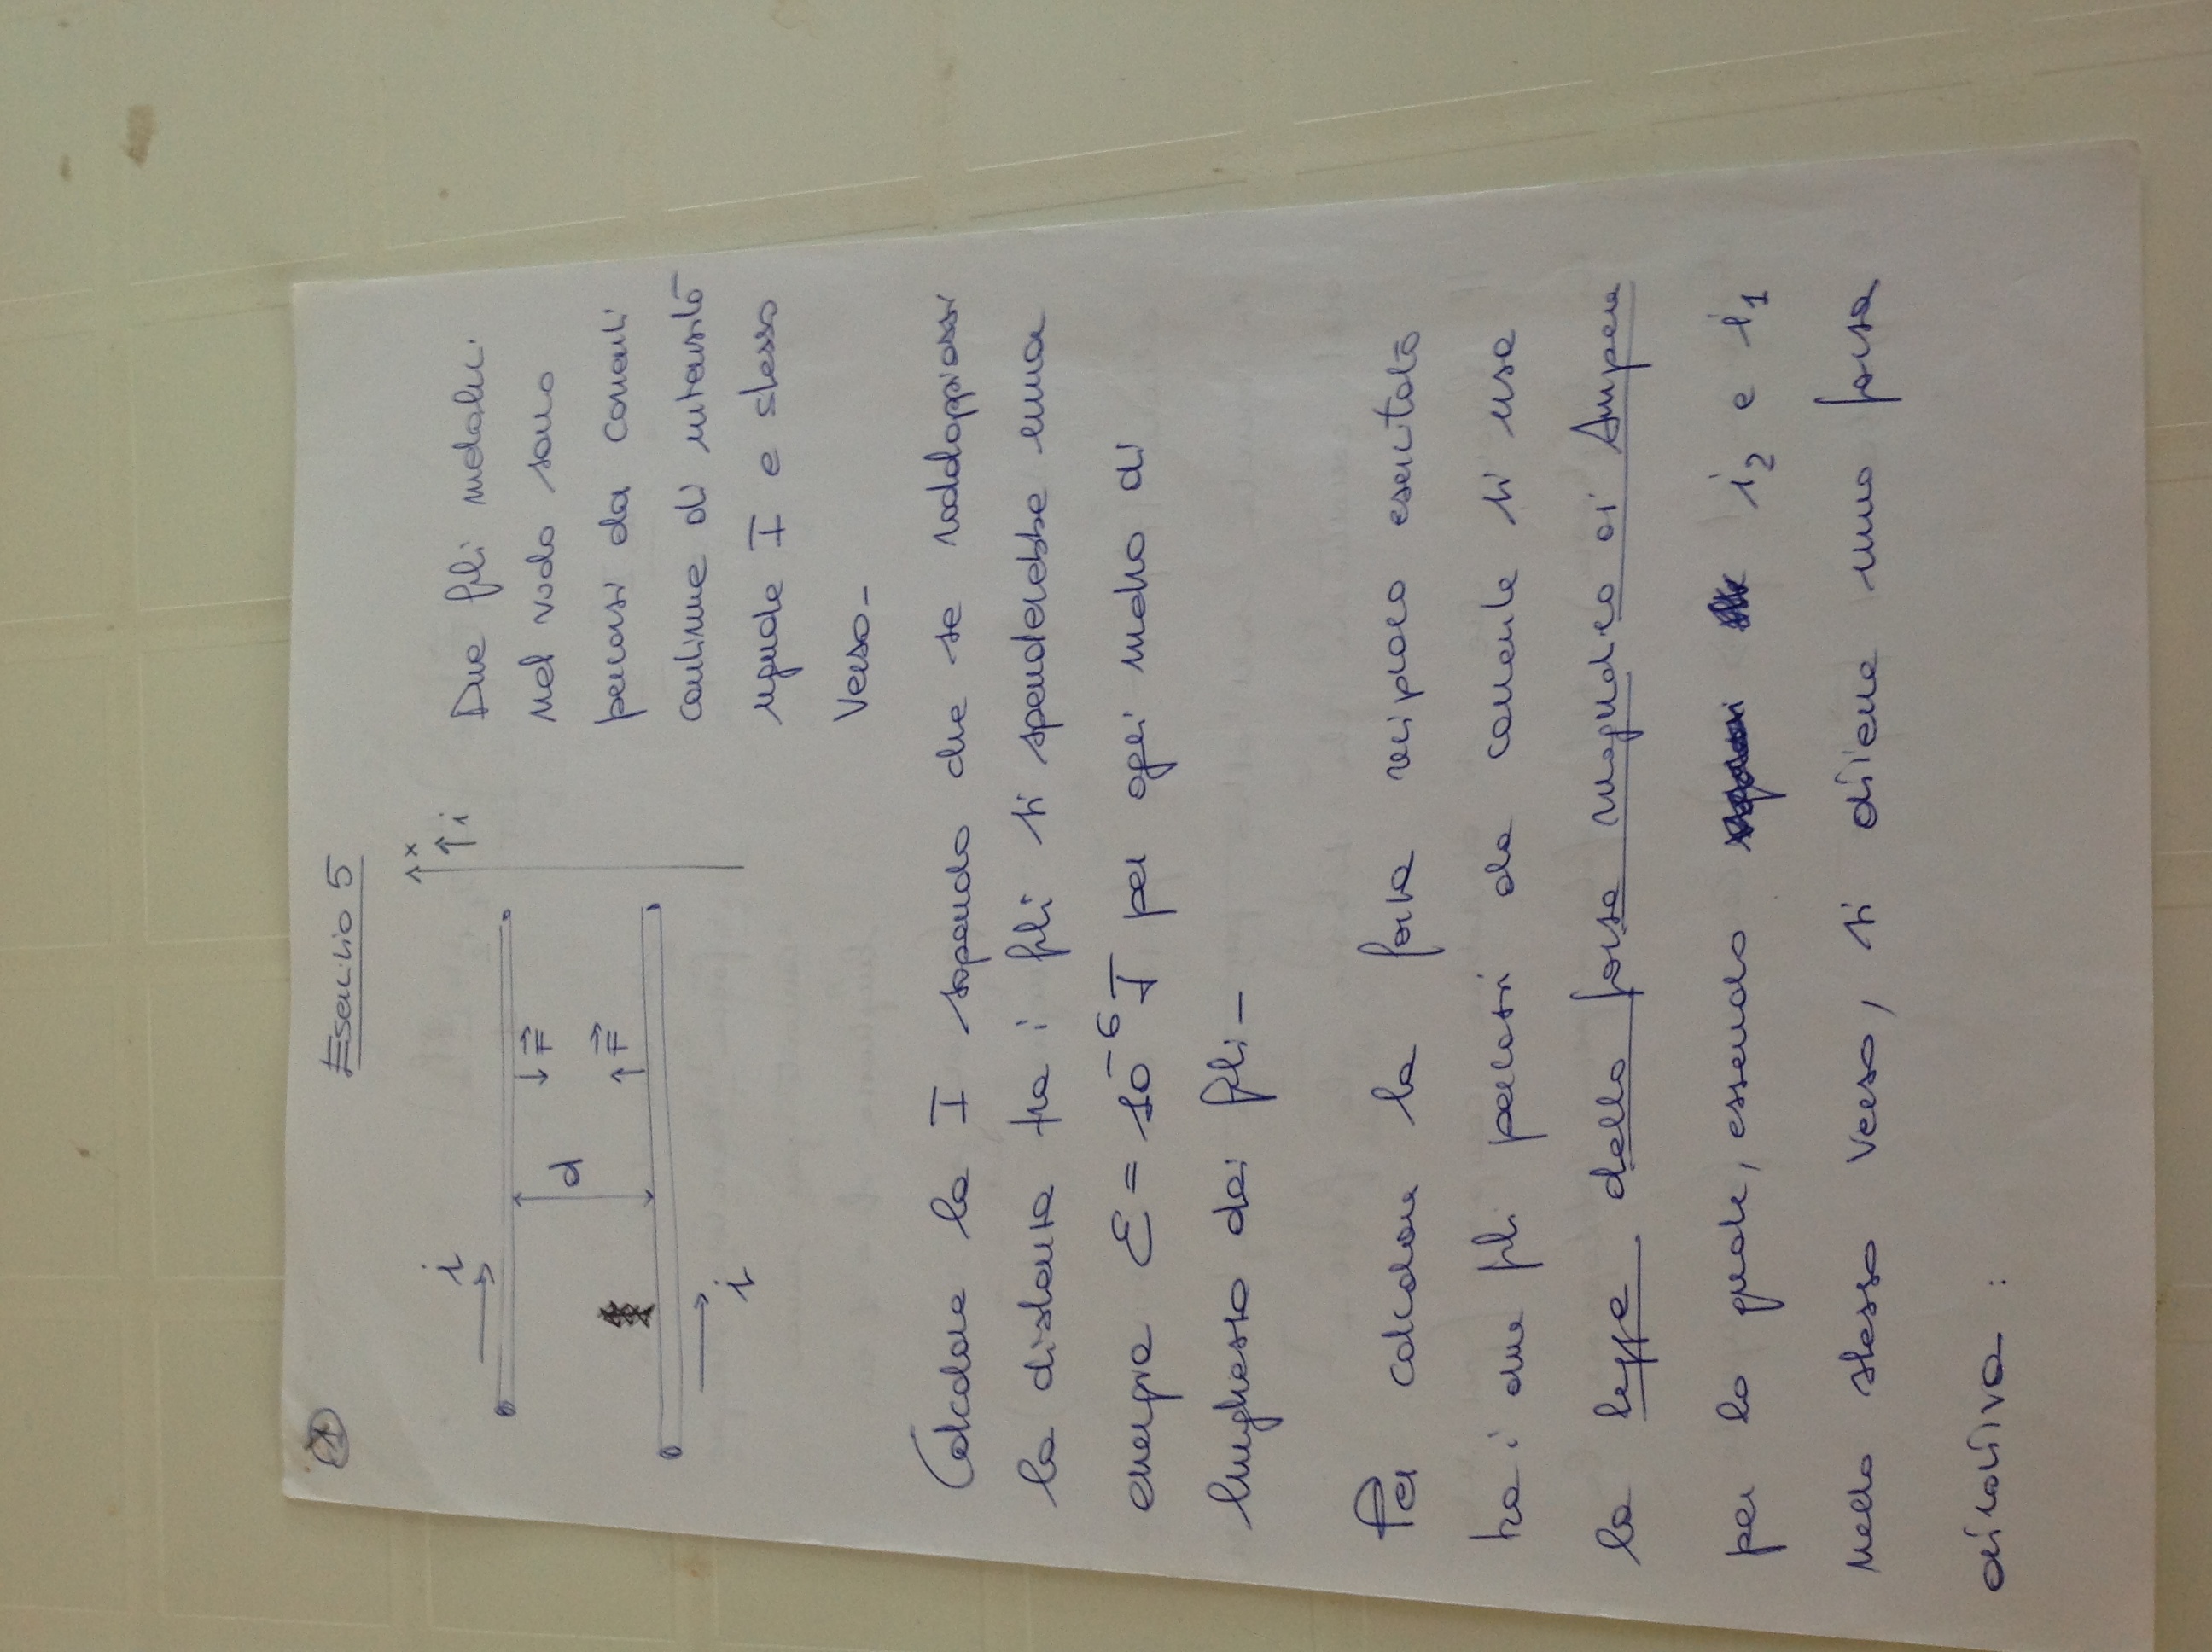 1
Esercizio 5
i
x
i
d
F
F
i
Due fili metallici
nel vuoto sono
percorsi da correnti
continue di intensità
uguale I e stesso
verso-
Calcolare la I sapendo che se raddoppiassi
la distanza tra i fili si spenderebbe una
energia E = 10⁻⁶ J per ogni metro di
lunghezza dei fili-
Per calcolare la forza reciproca esercitata
tra i due fili percorsi da corrente si usa
la legge della forza magnetica di Ampere
per la quale, essendo i₂ e i₁
nello stesso verso, si ottiene una forza
attrattiva :